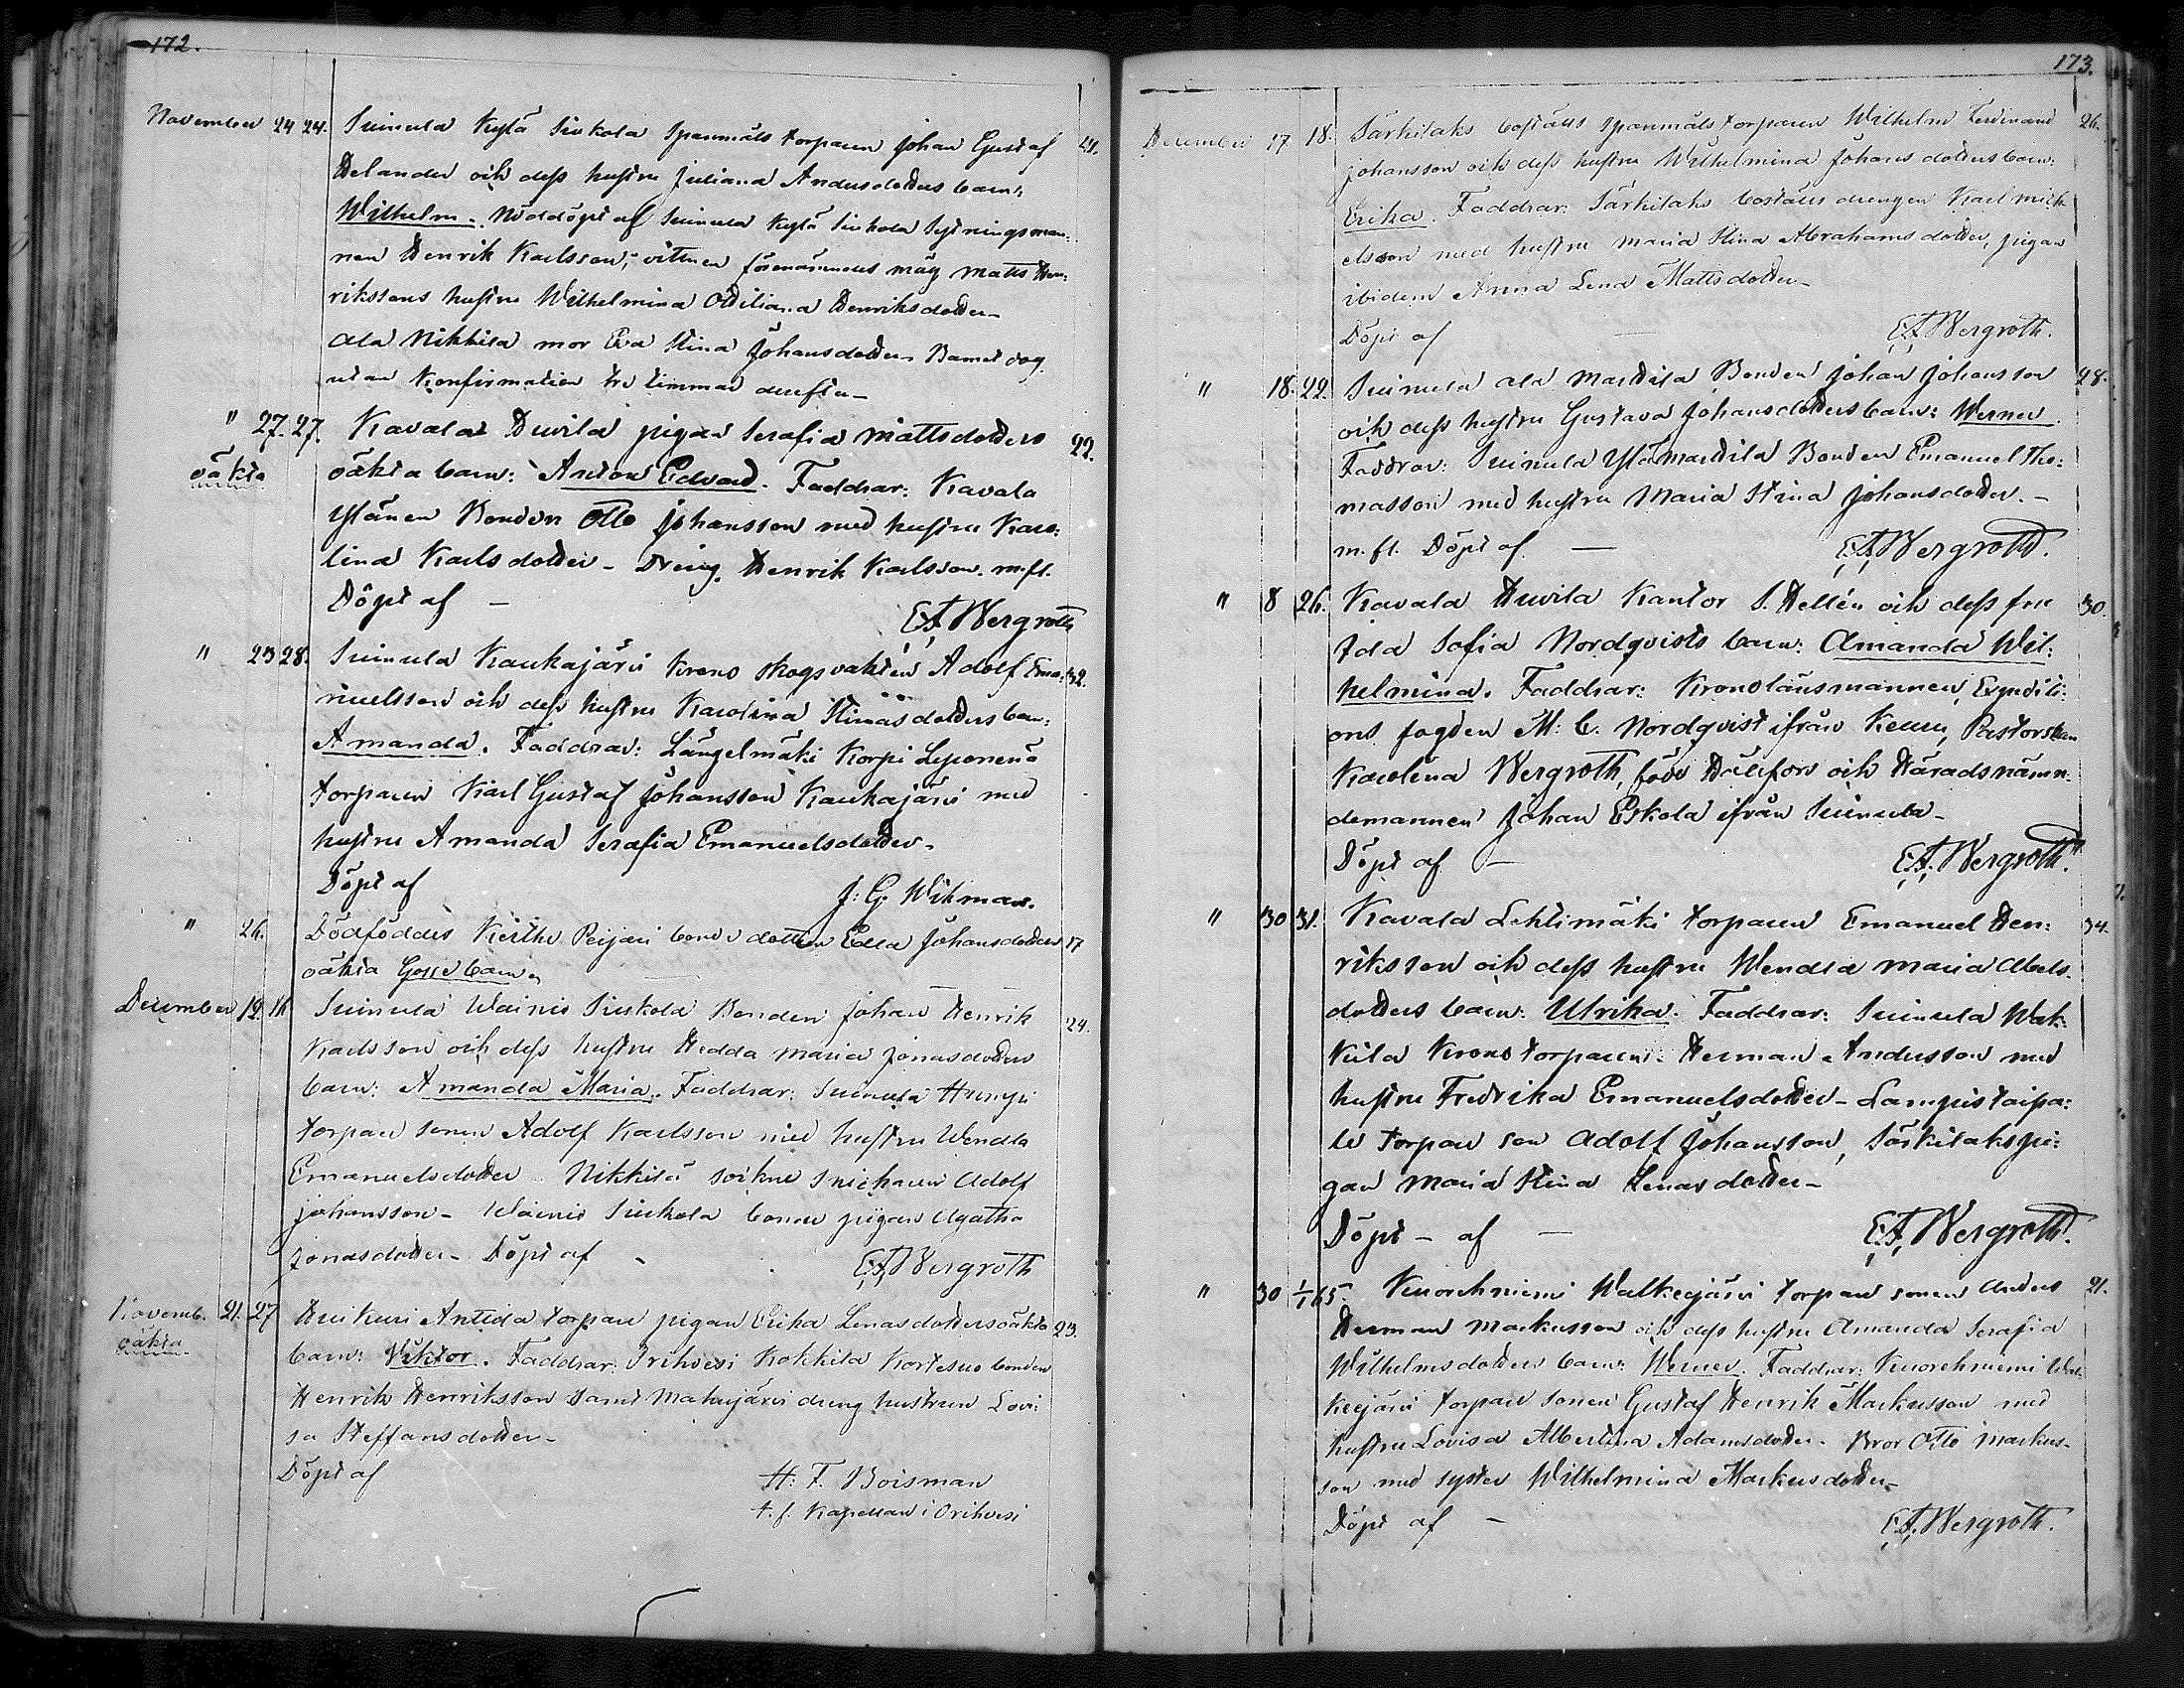 172.
November 24 24. Suinula Kylä Siukola Spanmåls torparen Johan Gustaf 41.
Helander och dess hustru Juliana Andersdotters barn:
Wilhelm. Nöddöpt af Suinula Kylä Siukola Sytningsman-
nen Henrik Karlsson; vittnen förenämndes måg Matts Hen:
rikssons hustru Wilhelmina Ottiliana Henriksdotter
Ala Nikkilä mor Eva Stina Johansdotter. Barnet dog
utan Konfirmation tre timmar derefter
" 27. 27. Kavala Huvila pigan Serafia Mattsdotters 22.
oäkta oäkta barn: Anton Edvard. Faddrar: Kavala
Ylänen Bonden Otto Johansson med hustru Karo:
lina Karlsdotter - Dräng. Henrik Karlsson. m.fl.
Döpt af - E.A. Bergroth
" 23 28. Suinula Kaukajärvi Krono skogsvakten Adolf Ema: 32.
nuelsson och dess hustru Karolina Stinasdotters barn:
Amanda. Faddrar: Längelmäki Korpi Leponena
torparen Karl Gustaf Johansson Kaukajärvi med
hustru Amanda Serafia Emanuelsdotter.
Döpt af J: G. Wikman.
" 26. Dödföddes Keitho Peijari bonde dottren Edla Johansdotters 17
oäkta Gosse barn.
December 12. 16 Suinula Wainio Siukola Bonden Johan Henrik 24.
Karlsson och dess hustru Hedda Maria Jonasdotters
barn: Amanda Maria. Faddrar: Suinula Hunyi
torpare sonen Adolf Karlsson med hustru Wendla
Emanuelsdotter. Nikkilä sockne Snickaren Adolf
Johansson - Wainio Siukola bonde pigan Agatha
Jonasdotter - Döpt af - E.A. Bergroth
Novemb. 21. 27 Huikuri Anttila torpare pigan Erika Lenasdotters oäkta 23.
oäkta barn: Viktor. Faddrar: Orihvesi Kokkila Kortesuo bonden
Henrik Henriksson samt Makujärvi dreng hustrun Lovi:
sa Steffansdotter
Döpt af H: F. Boisman
t. f. Kapellan i Orihvesi
173.
December 17 18. Särkilaks boställs spanmåls torparen Wilhelm Ferdinand 26.
Johansson och dess hustru Wilhelmina Johansdotters barn:
Erika. Faddrar: Särkilaks boställs drengen Karl Mick
elsson med hustru Maria Stina Abrahamsdotter, pigan
ibidem Anna Lena Mattsdotter
Döpt af E.A. Bergroth.
" 18. 22. Suinula Ala Marttila Bonden Johan Johansson 28.
och dess hustru Gustava Johansdotters barn: Werner.
Faddrar: Suinula Ylä Marttila Bonden Emanuel Tho:
masson med hustru Maria Stina Johansdotter. -
m. fl. Döpt af. E.A. Bergroth.
" 8 26. Kavala Huvila Kantor S. Hellén och dess fru 30.
Ida Sofia Nordqvists barn: Amanda Wil:
helmina. Faddrar: Kronolänsmannen, Expediti:
ons fogden M: C. Nordqvist ifrån Keuru, Pastorskan
Karolina Bergroth, född Hällfors och Häradsnämn-
demannen Johan Eskola ifrån Suinula
Döpt af - E.A. Bergroth.
" 30 31. Kavala Lehtimäki torparen Emanuel Hen: 34.
riksson och dess hustru Wendla Maria Abels-
dotters barn: Ulrika. Faddrar: Suinula Wak:
kila Krono torparen Herman Andersson med
hustru Fredrika Emanuelsdotter - Lampis taipa:
le torpare son Adolf Johansson, Särkilaks pi:
gan Maria Stina Lenasdotter
Döpt - af - E.A. Bergroth.
" 30 1/1 65. Kuorehniemi Walkeejärvi torpare sonen Anders 21.
Herman Markusson och dess hustru Amanda Serafia
Wilhelmsdotters barn: Werner. Faddrar: Kuorehniemi Wal-
keejärvi torpare sonen Gustaf Henrik Markusson med
hustru Lovisa Albertina Adamsdotter. Bror Otto Markus-
son med syster Wilhelmina Markusdotter
Döpt af - E.A. Bergroth.